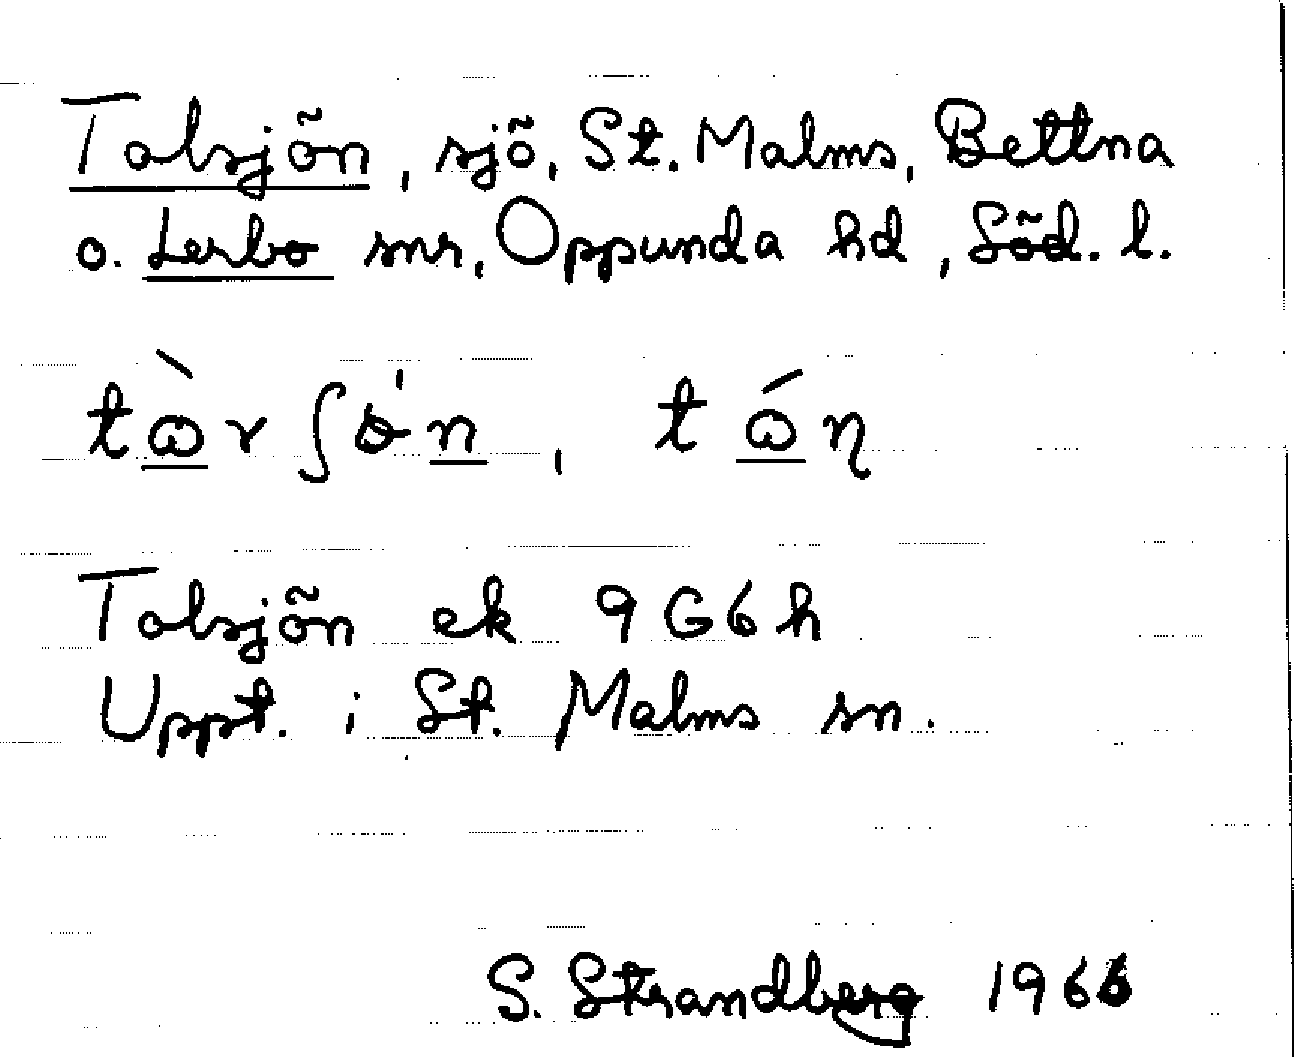 Tolsjön, sjö, St. Malms, Bettna
o. Lerbo snr, Oppunda hd, Söd. l.
Tolsjön ek 9G6h
Uppt. i St. Malms sn.
S. Strandberg 1966